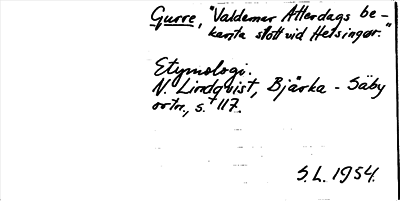 Gurre, "Valdemar Atterdags be-
kanta slott vid Helsingör."
Etymologi.
N. Lindqvist, Bjärka-Säby
ortn., s. 117.
S.L. 1954.